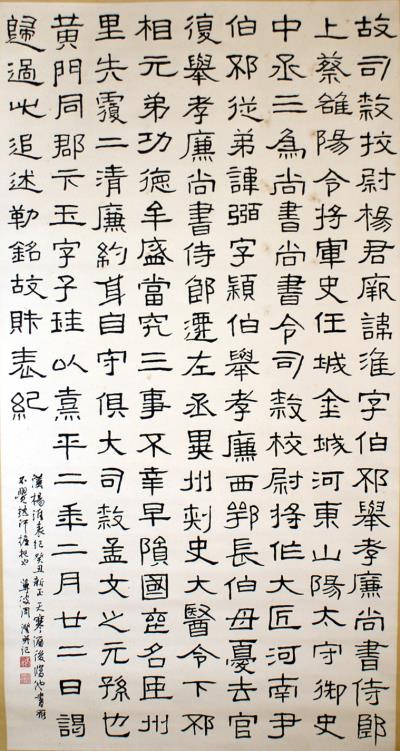 故司隸校尉楊君厥諱淮字伯邳舉孝廉尚書侍郎
上蔡雒陽令將軍史任城金城河東山陽太守御史
中丞三為尚書尚書令司隸校尉將作大匠河南尹
伯邳從弟諱弼字穎伯舉孝廉西鄂長伯母憂去官
復舉孝廉尚書侍郎遷左丞冀州刺史大醫令下邳
相元弟功德牟盛當究三事不幸早隕國喪名臣州
里失覆二清廉約身自守俱大司隸孟文之元孫也
黃門同郡卞玉字子珪以熹平二年二月廿二日謁
歸過此追述勒銘故財表紀
漢楊淮表記癸丑新正天寒酒後臨此書
不覺